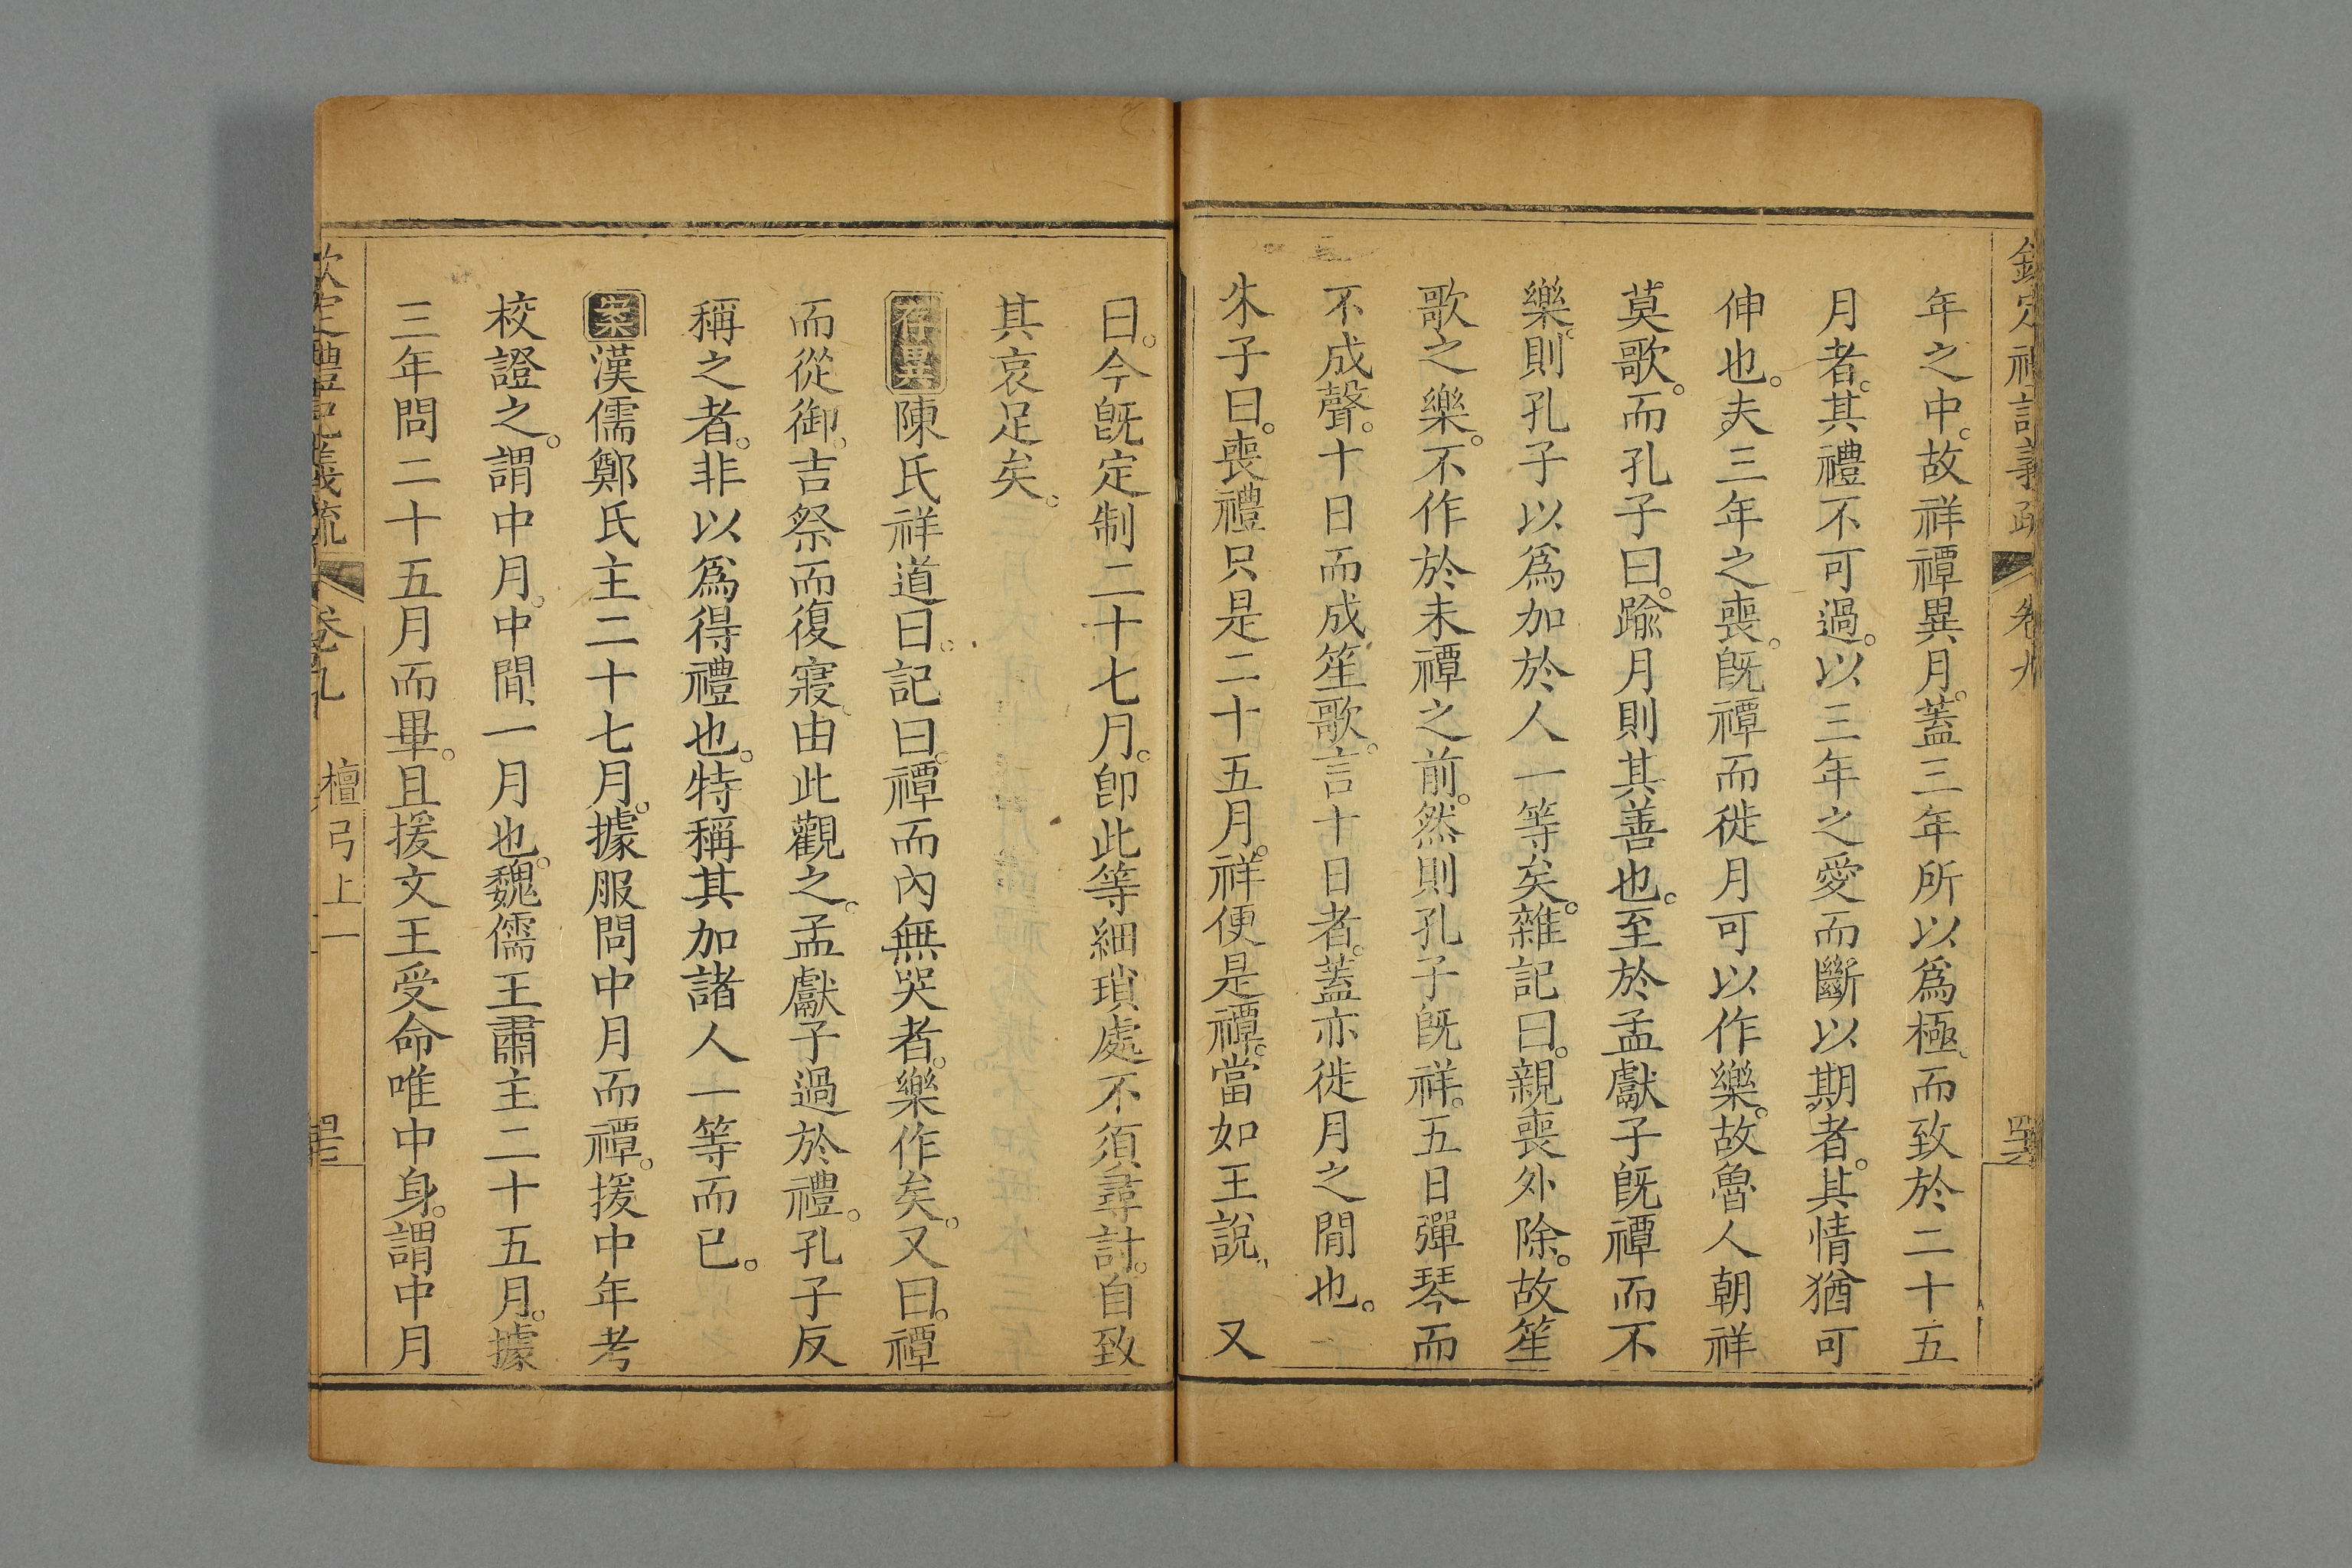 欽定禮記義疏 卷九
年之中。故祥禫異月。蓋三年所以爲極、而致於二十五
月者。其禮不可過。以三年之愛而斷以期者。其情猶可
伸也。夫三年之喪。旣禫而徙月可以作樂。故魯人朝祥
莫歌。而孔子曰。踰月則其善也。至於孟獻子旣禫而不
樂。則孔子以爲加於人一等矣。雜記曰。親喪外除。故笙
歌之樂。不作於未禫之前。然則孔子旣祥。五日彈琴而
不成聲。十日而成笙歌。言十日者。蓋亦徙月之閒也。
朱子曰。喪禮只是二十五月。祥便是禫。當如王說、 又
曰。今旣定制二十七月。卽此等細瑣處不須尋討。自致
其哀足矣。
存異陳氏祥道曰。記曰。禫而內無哭者。樂作矣。又曰。禫
而從御。吉祭而復寢、由此觀之。孟獻子過於禮。孔子反
稱之者。非以爲得禮也。特稱其加諸人一等而已。
案漢儒鄭氏主二十七月。據服問中月而禫。援中年考
校證之。謂中月。中間、一月也。魏儒王肅主二十五月。據
三年問二十五月而畢。且援文王受命唯中身。謂中月
欽定禮記義疏 卷九 檀弓上一